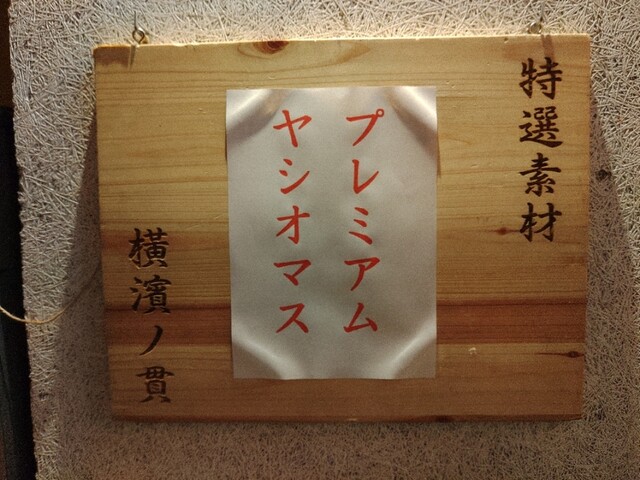 特選素材
プレミアム
ヤシオマス
横濱ノ貫